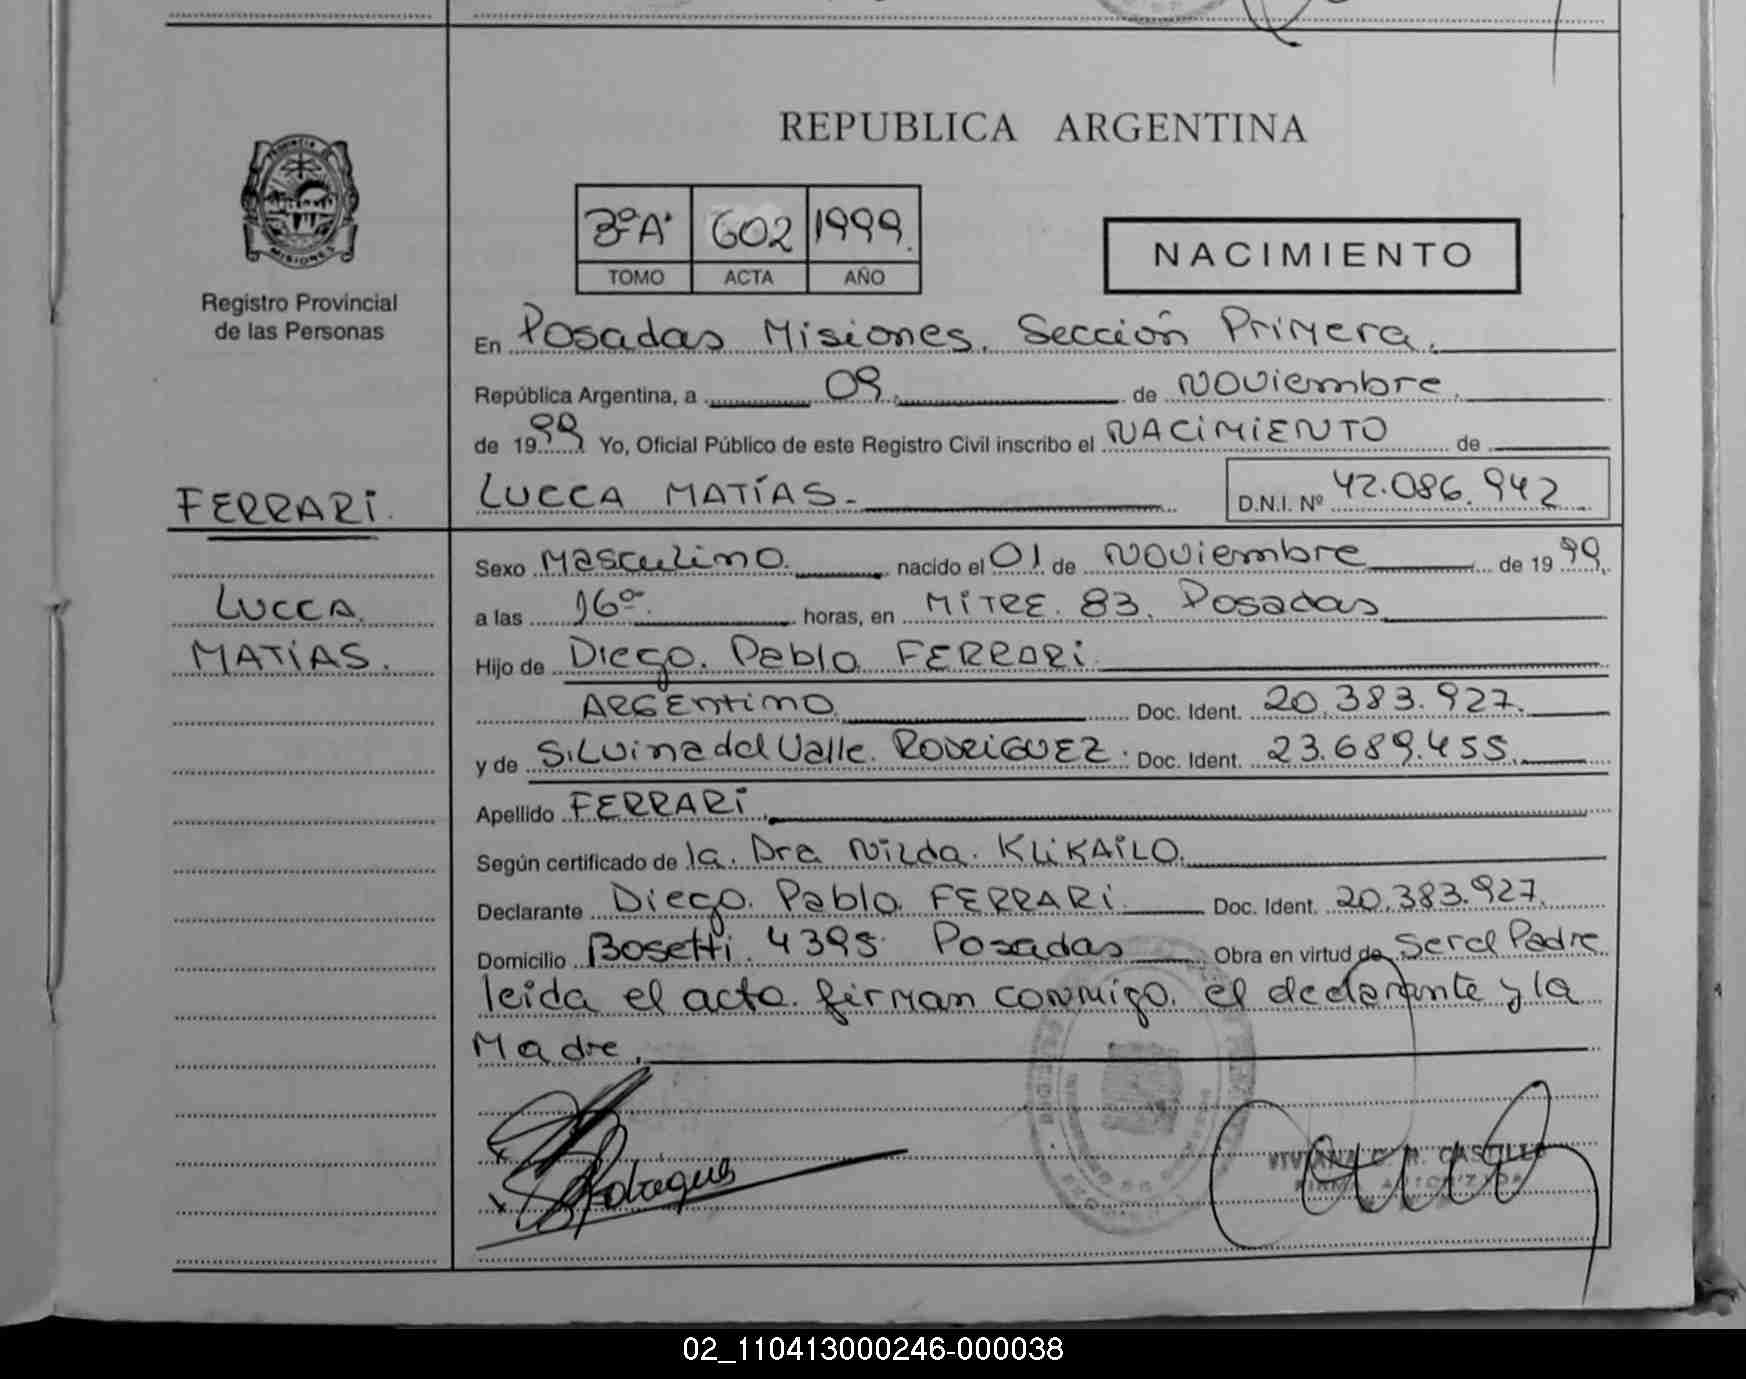 PROVINCIA DE
MISIONES
Registro Provincial
de las Personas
REPUBLICA ARGENTINA
3ºA. 602 1999.
TOMO ACTA AÑO
NACIMIENTO
En Posadas Misiones. Sección Primera.
República Argentina, a 09. de Noviembre.
de 1999 Yo, Oficial Público de este Registro Civil inscribo el NACIMIENTO de
LUCCA MATÍAS.- D.N.I. Nº 42.086.942
FERRARI.
LUCCA
MATÍAS.
Sexo Masculino. nacido el 01 de Noviembre de 1999.
a las 16 horas, en MITRE. 83. Posadas
Hijo de Diego. Pablo FERRARI.
ARGENTINO Doc. Ident. 20.383.927.
y de Silvina del Valle. RODRIGUEZ. Doc. Ident. 23.689.455.
Apellido FERRARI.
Según certificado de la. Dra Nilda. KLIKAILO.
Declarante Diego. Pablo. FERRARI. Doc. Ident. 20.383.927.
Domicilio Bosetti. 4395. Posadas Obra en virtud de Ser el Padre
leida el acta. firman conmigo. el declarante y la
Madre.
VIVIANA C. R. CASTILLA
FIRMA AUTORIZADA
02_110413000246-000038